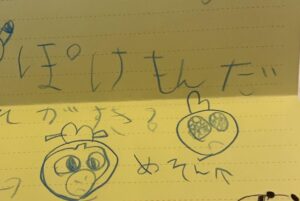 ぽけもんだ
がすき?
めそん